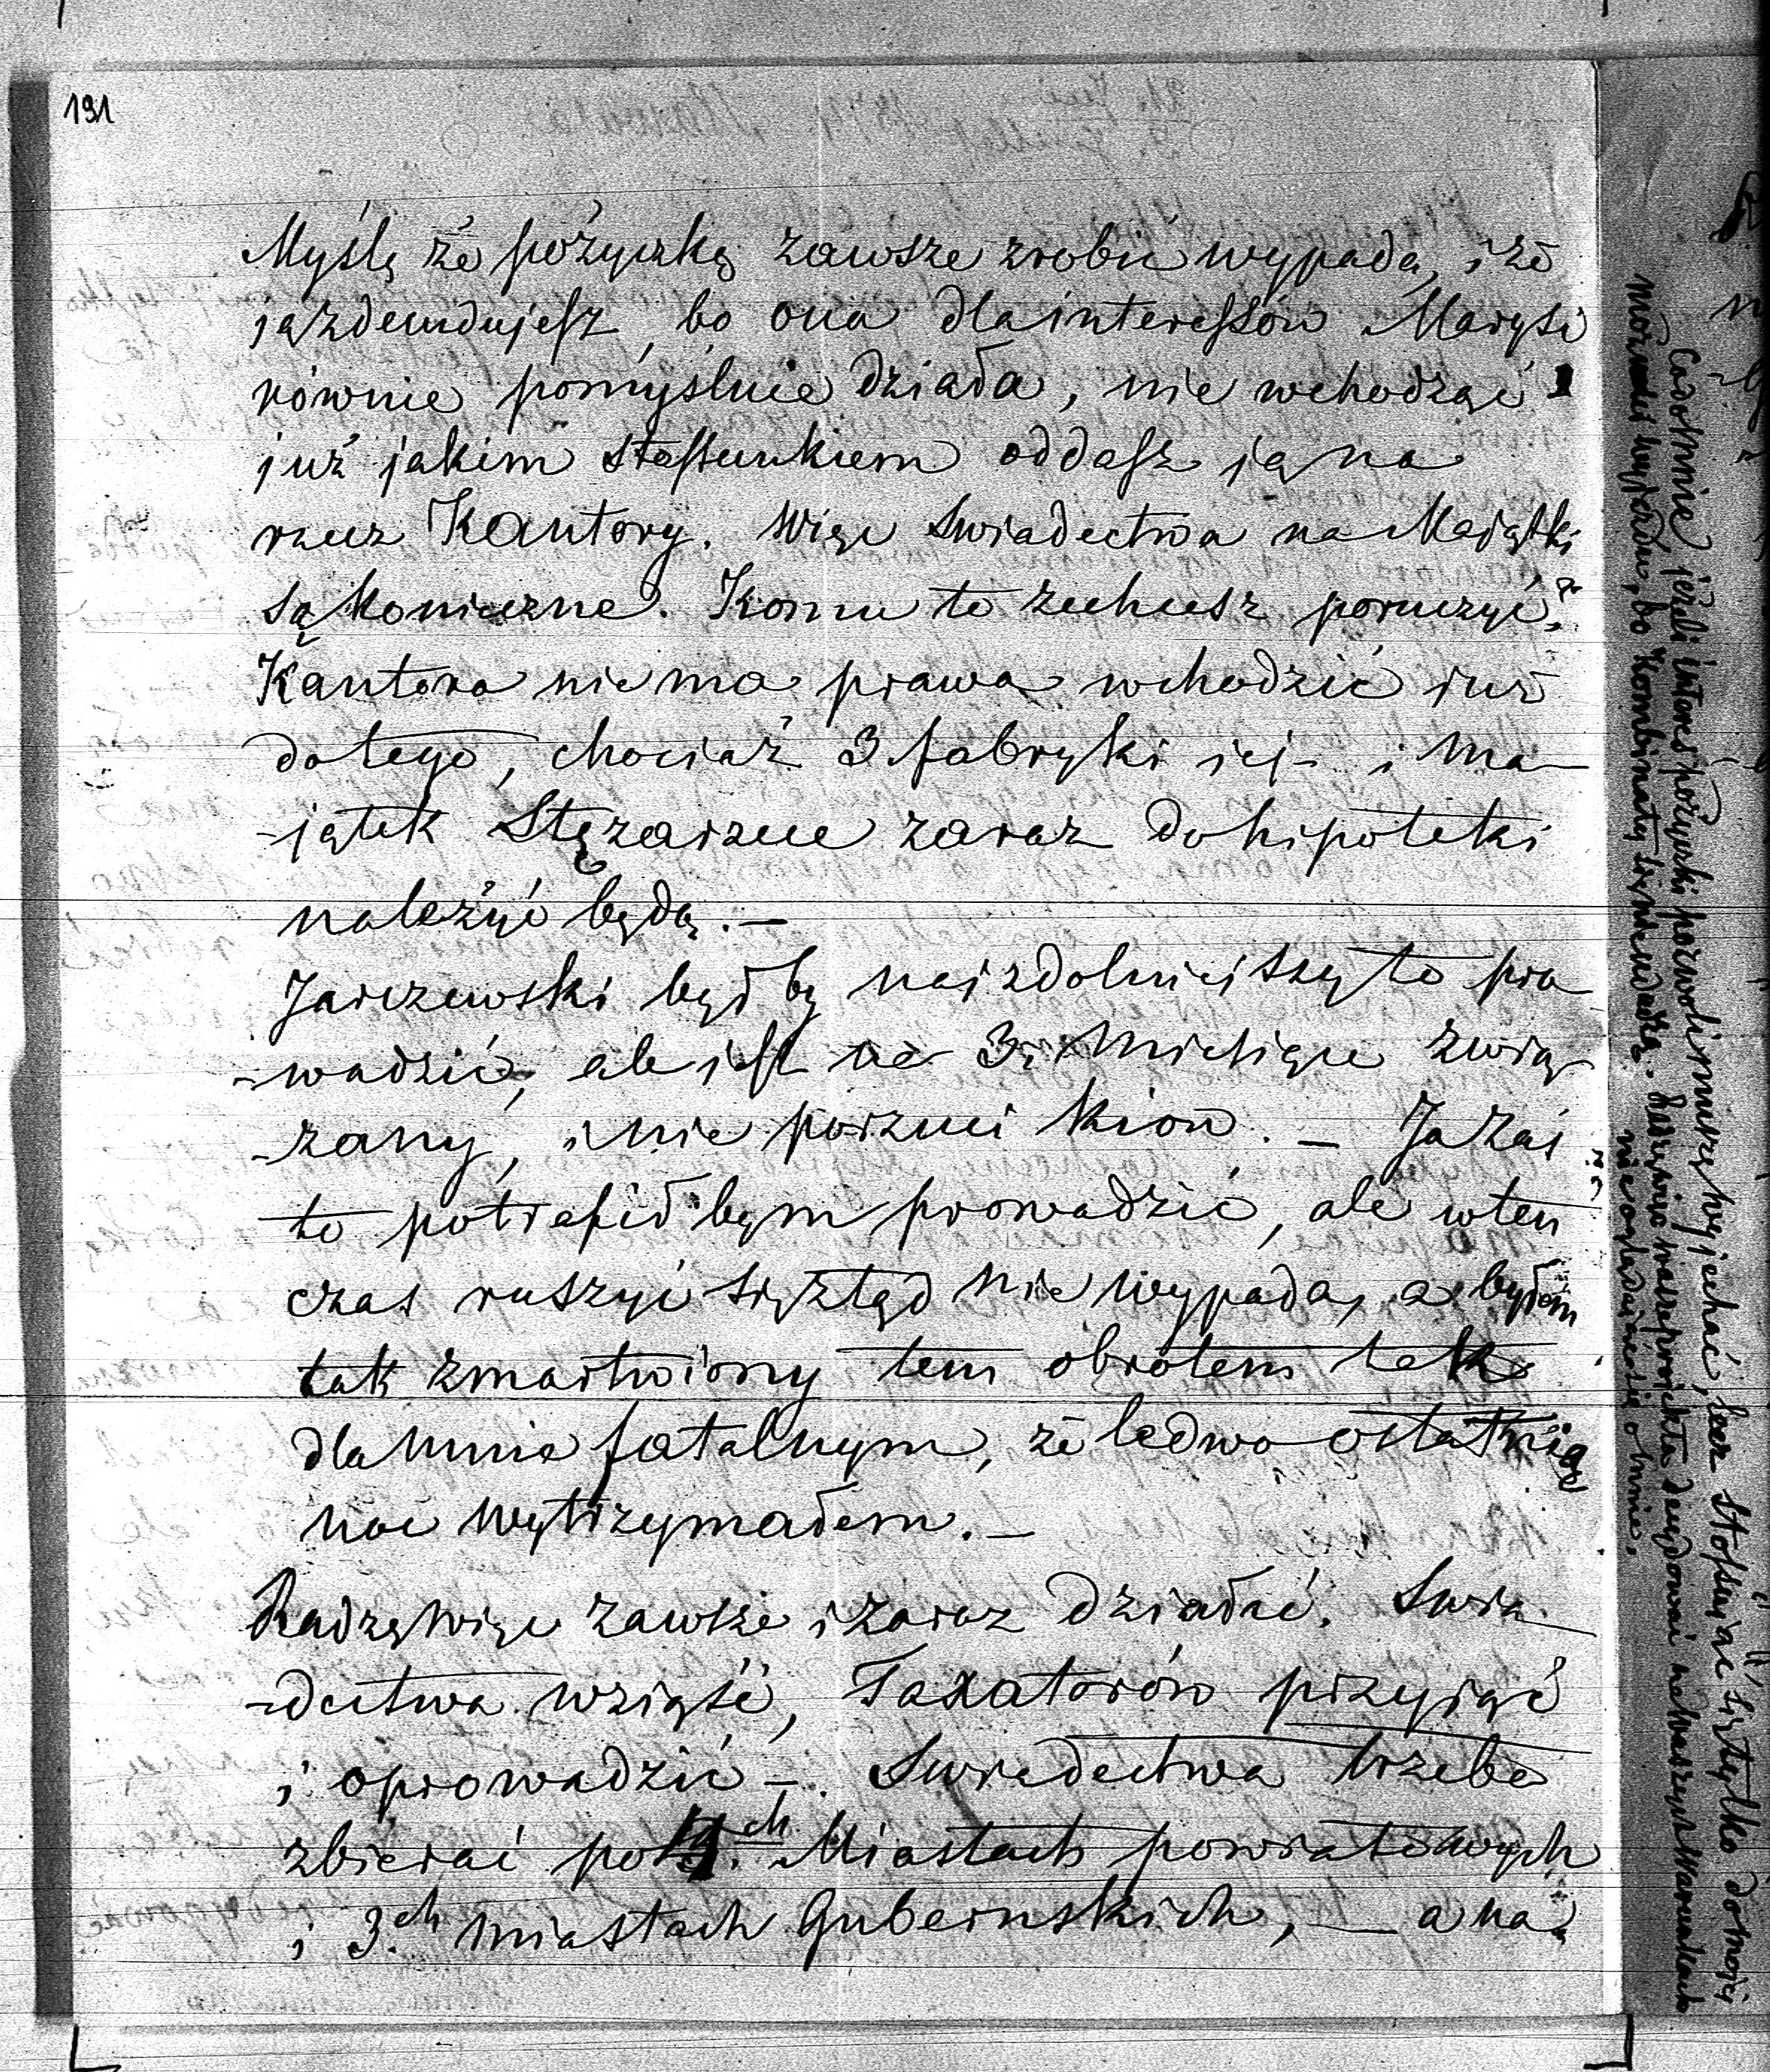 191
Myślę że pożyczkę zawsze zrobić wypada, i że
ją zdecydujesz, bo ona dla interessów Marysi
równie pomyślnie działa, nie wchodząc
już jakim stossunkiem oddasz ją na
rzecz Kantory. Więc Swiadectwa na Majątki
są konieczne. Komu to zechcesz poruczyć?
Kantora nie ma prawa wchodzić już
do tego, chociaż 3 fabryki jej i ma-
-jątek Stężarzce zaraz do hipoteki
należyć będą. —
Jarczewski byłby najzdolniejszy to pro
-wadzić, ale jest na 3. Miesiące zwią
-zany, i nie porzuci Kiow. — Ja zaś
to potrafił bym prowadzić, ale w ten
czas ruszyć się ztąd nie wypada, a byłem
tak zmartwiony tem obrotem tak
dla mnie fatalnym, że ledwo ostatnią
noc wytrzymałem. —
Radzę więc zawsze i zaraz działać. Swia
-dectwa wziąść, Taxatorów przyjąć
i oprowadzić —. Swiadectwa trzeba
zbierać po 4ch Miastach powiatowych
i 3.ch miastach Gubernskich, — a na
Co do mnie jeżeli interes pożyczki pozwoli muszę wyjechać, lecz stossując się tylko do mojej
możności wyjazdu, bo Kombinatę się nie udadzą. Radzę pino wasze projekta decydować na waszych warunkach
nie oglądając się o mnie.